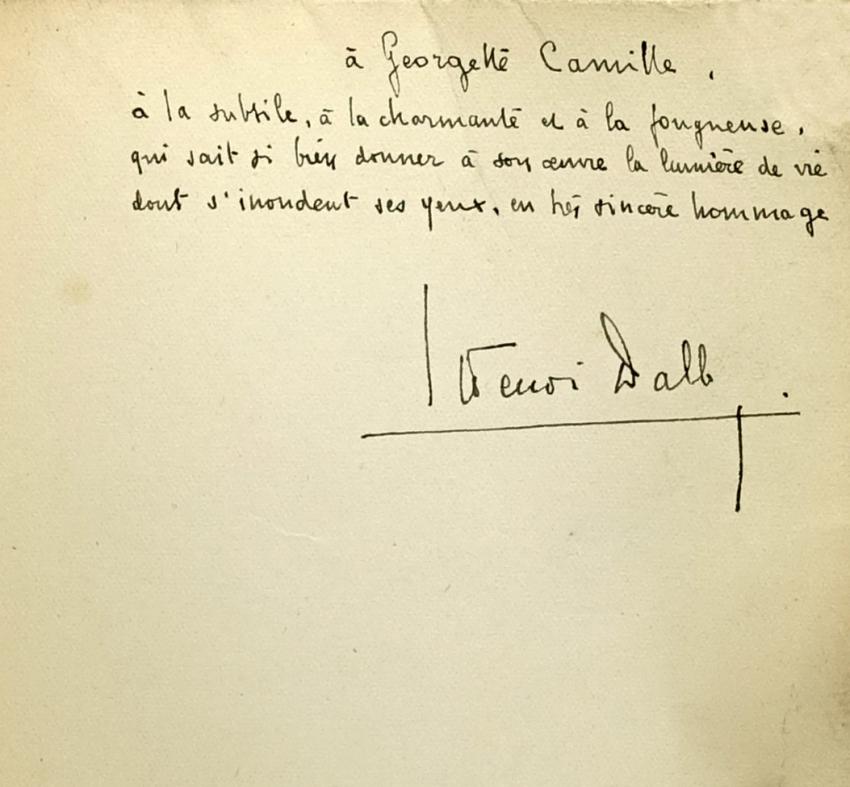 à Georgette Camille,
à la subtile, à la charmante et à la fougueuse,
qui sait si bien donner à son œuvre la lumière de vie
dont s'inondent ses yeux, en très sincère hommage
Henri Dalby.